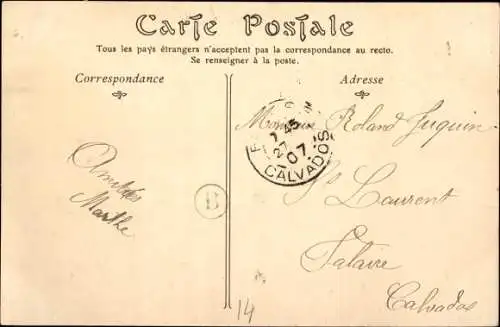 Carte Postale
Tous les pays étrangers n'acceptent pas la correspondance au recto.
Se renseigner à la poste.
Correspondance
Adresse
Amitiés
Marthe
B
14
27
07
CALVADOS
Monsieur Roland Juquin
St Laurent
Falaise
Calvados